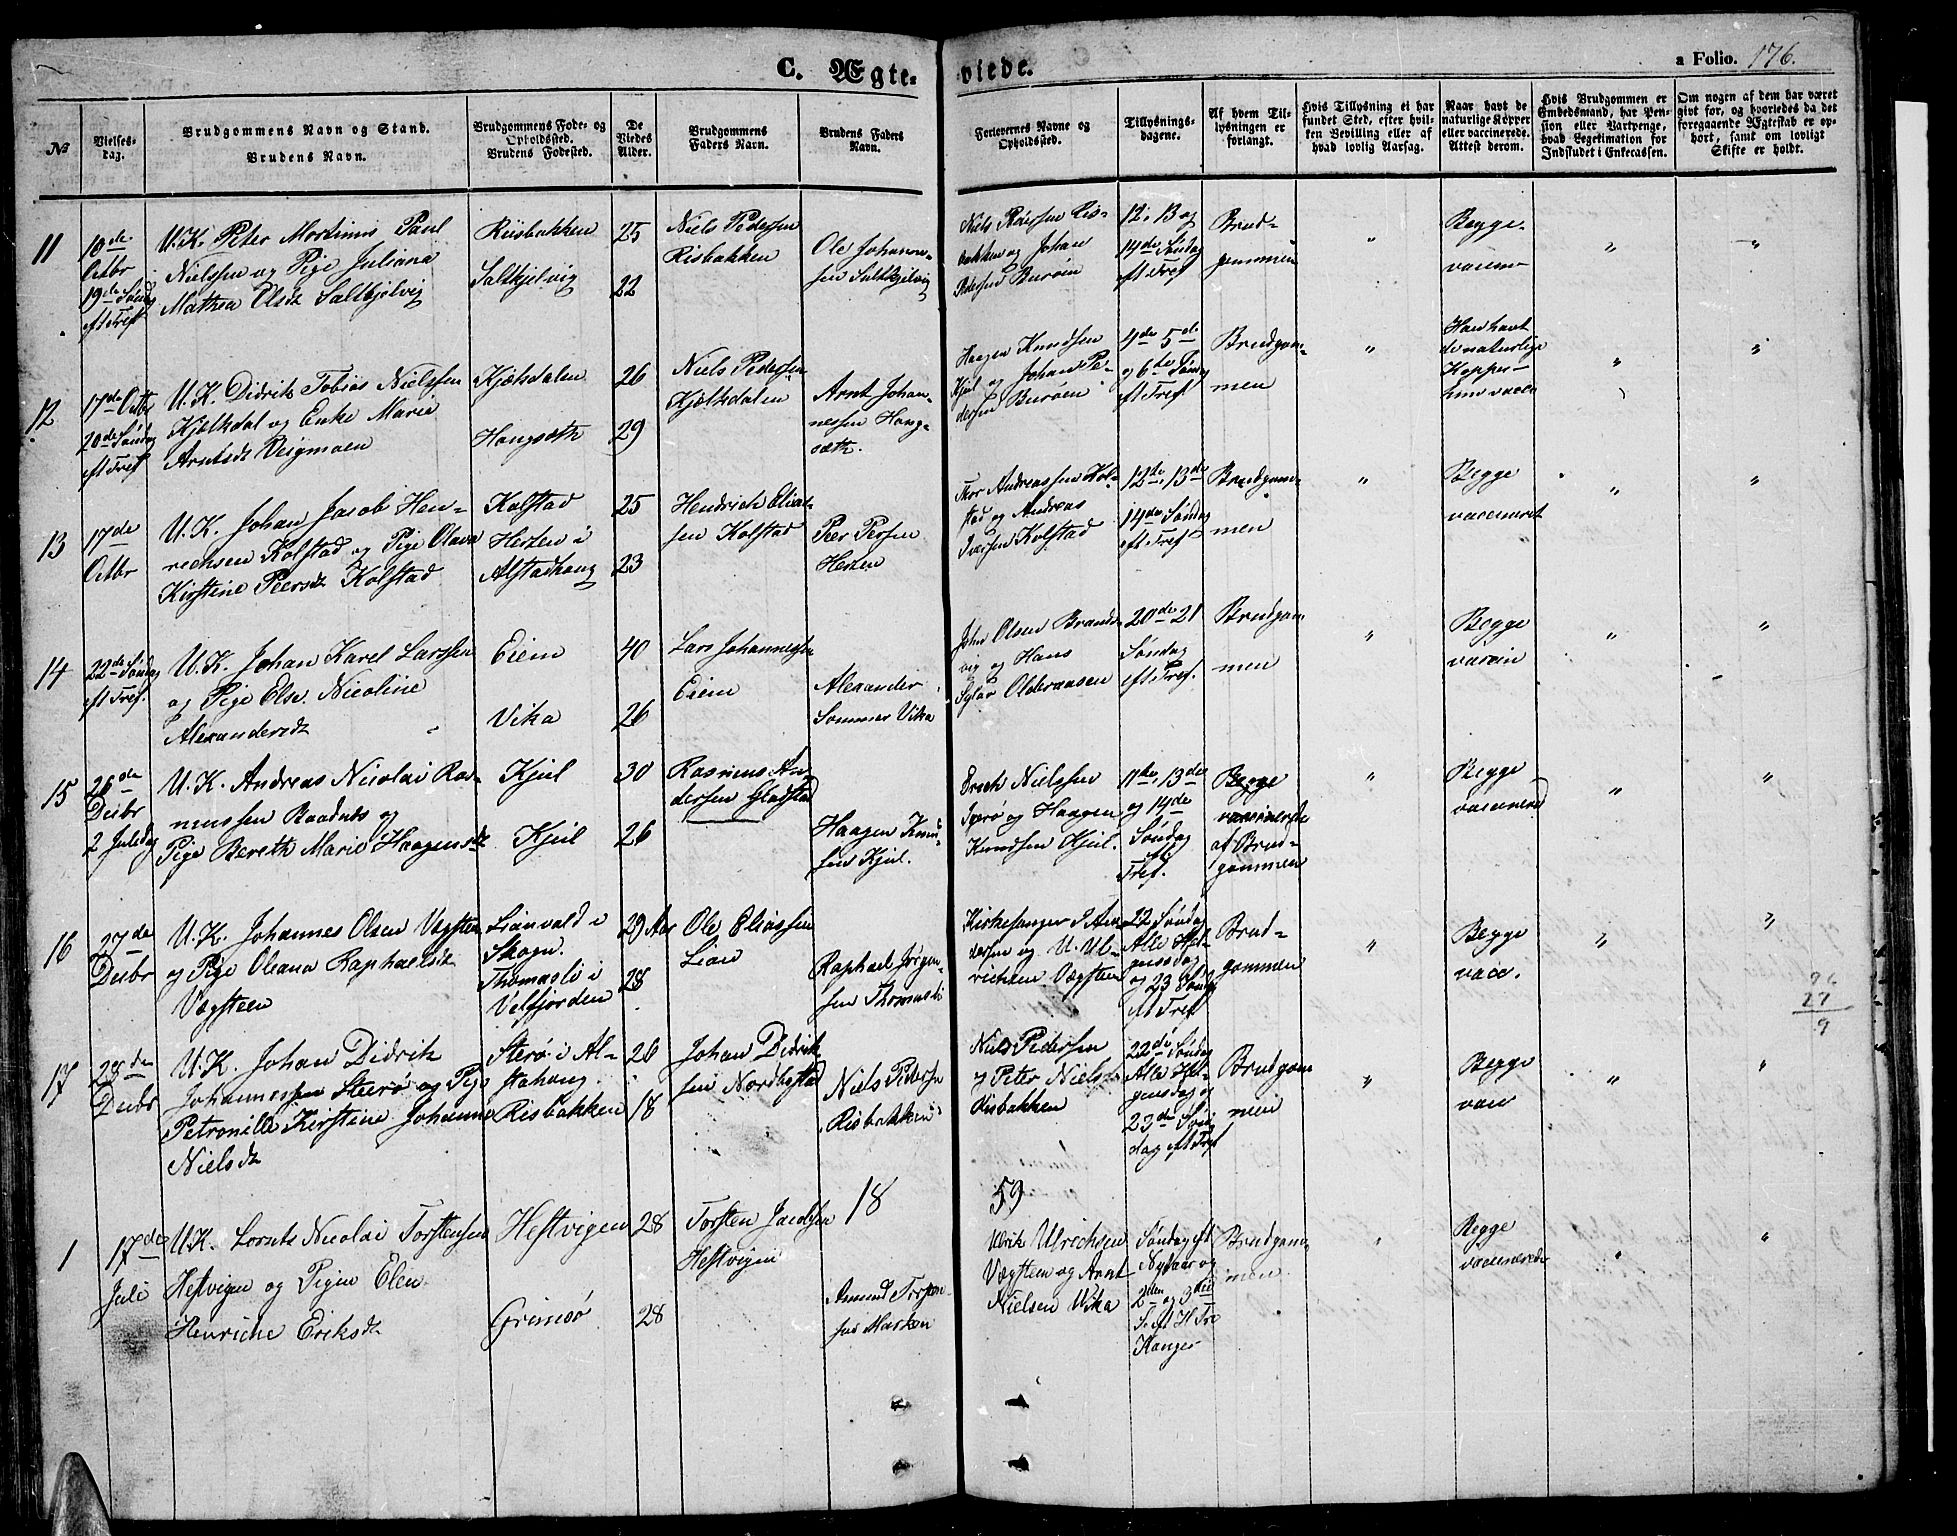 C. Ægteviede.
a Folio. 176.
№
Vielsesdag.
Brudgommens Navn og Stand.
Brudens Navn.
Brudgommens Føde- og Opholdssted.
Brudens Fødested.
De Viedes Alder.
Brudgommens Faders Navn.
Brudens Faders Navn.
Forlovernes Navne og Opholdssted.
Tillysningsdagene.
Af hvem Tillysningen er forlangt.
Hvis Tillysning ei har fundet Sted, efter hvilken Bevilling eller af hvad lovlig Aarsag.
Naar havt de naturlige Kopper eller vaccinerede. Attest derom.
Hvis Brudgommen er Embedsmand, har Pension eller Vartpenge, hvad Legitimation for Indskudet i Enkecassen.
Om nogen af dem har været givt før, og hvorledes da det foregaaende Ægteskab er ophørt, samt om lovligt Skifte er holdt.
11
10de Octbr
19de Søndag
eft Tref
U.K. Peter Mortinus Paul
Nielssen og Pige Juliana
Mathea Olsdt Saltkjelvig
Riisbakken
Saltkjelvig
25
22
Niels Pedersen
Risbakken
Ole Johannesen Saltkjelvig
Niels Risbakken og Johan
Pedersen Burøen
12, 13 og
14de Søndag
eft Tref
Brudgommen
"
Begge
vaccin
"
"
12
17de Octbr
20de Søndag
eft Tref
U.K. Didrik Tobias Nielssen
Kjelkdal og Enke Marie
Arntsdt Veigmoen
Kjækdalen
Hongsæth
26
29
Niels Pedersen
Kjelkdalen
Arnt Johannessen Hongsæth.
Haagen Knudsen
Kjul og Johan Pedersen Burøen
4de 5de
og 6te Søndag
eft Tref
Brudgommen
"
Han havt
de naturlige
Kopper
hun vaccin
"
"
13
17de
Octbr
U.K. Johan Jacob Henrechsen Kolstad og Pige Olava
Kirstine Peersdt Kolstad
Kolstad
Herten i
Alstadhoug
25
23
Hendrich Eliassen Kolstad
Peer Persen
Herten
Thor Andreassen Kolstad og Andreas
Iversen Kolstad
12de, 13de
14de Søndag
eft Tref
Brudgommen
"
Begge
vaccineret
"
"
14
22de Søndag
eft Tref.
U.K. Johan Karel Larssen
og Pige Else Nicoline
Alexandersdt
Eiem
Vika
40
26
Lars Johannessen
Eiem
Alexander
Sommer Vika
John Olsen Brandsvig og Hans
Olderaasen
20de 21
Søndag
eft Tref.
Brudgommen
"
Begge
vaccin
"
"
15
26de
Decbr
2 Juledag
U.K. Andreas Nicolai Rasmussen Baadnæs og
Pige Bereth Marie Haagensdt
Kjul
Kjul
30
26
Rasmus Andersen Gladstad
Haagen Knudsen Kjul.
Erich Nielssen
og Haagen
Knudsen Kjul.
11te, 13de
og 14de
Søndag
eft
Tref.
Begge
vaccinerede
af Brudgommen
"
Begge
vaccinered
"
"
16
27de
Decbr
U.K. Johannes Olsen Vægsteen
og Pige Oleana Raphaelsdt
Vægsteen
Lianvald i
Skogn.
Thomasli i
Velfjorden
29 Aar
28
Ole Eliassen
Lian
Raphael Jørgensen Thomasli
Kirkesanger Andersen og U. Ulrichsen Vægsteen
22 Søndag
Alle Helgensdag
og 23 Sønd
eft Tref
Brudgommen
"
Begge
vacc.
"
"
96
27
9
17
28de
Decbr
U.K. Johan Didrik
Johannessen Sterø og Pige
Petronille Kirstine Johanne
Nielsdt
Sterø i Alstahoug
Risbakken
26
18
Johan Didriksen Nordbostad
Niels Pedersen
Risbakken
Niels Pedersen
og Peter Nielsen
Risbakken
22de Søndag
Alle Helgensdag og
23de Søndag eft Tref
Brudgommen
"
Begge
vacc
"
"
18
59
1
17de
Juli
U.K. Lornts Nicolai Torstensen
Hestvigen og Pigen Elen
Henriche Eriksdt
Hestvigen
Grimsø
28
28
Torsten Jacobsen
Hestvigen
Amund
Ulrik Ulrichsen
Vægsteen og Arnt
Nielsen Vika
Søndag eft
Nytaar og
2den og 3die
S. eft H Tre
Konger
Brudgommen
"
Begge
vaccinerede
"
"